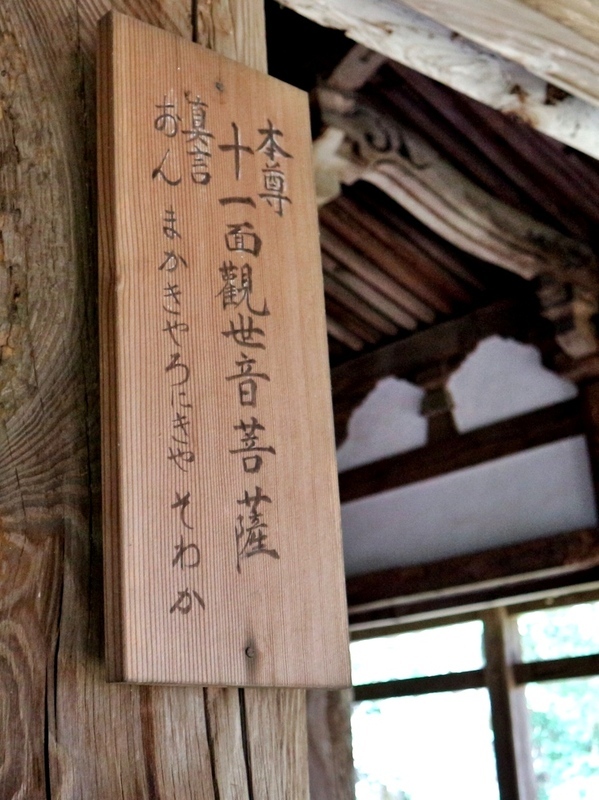 本尊
十一面觀世音菩薩
真言
おん まかきやろにきや そわか